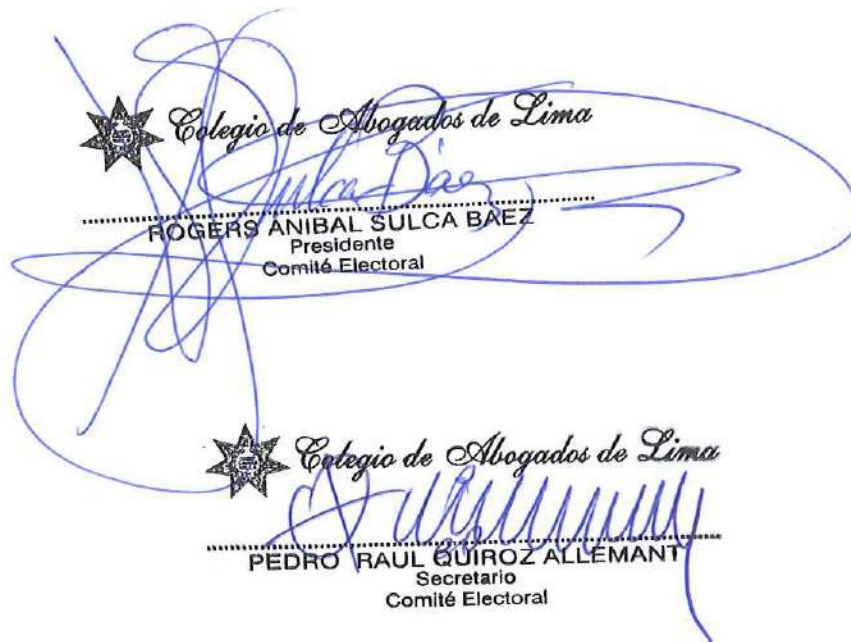 Colegio de Abogados de Lima
Sulca Baez
ROGERS ANIBAL SULCA BAEZ
Presidente
Comité Electoral
Colegio de Abogados de Lima
PEDRO RAUL QUIROZ ALLEMANT
Secretario
Comité Electoral